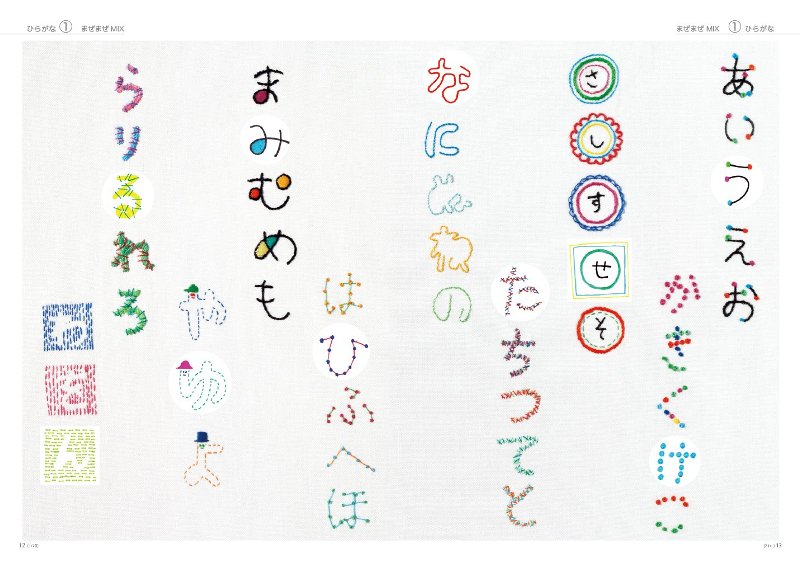 ひらがな ① まぜまぜ MIX
まぜまぜ MIX ① ひらがな
あいうえお
かきくけこ
さしすせそ
たちつてと
なにぬねの
はひふへほ
まみむめも
やゆよ
らりるれろ
わをん
12
13